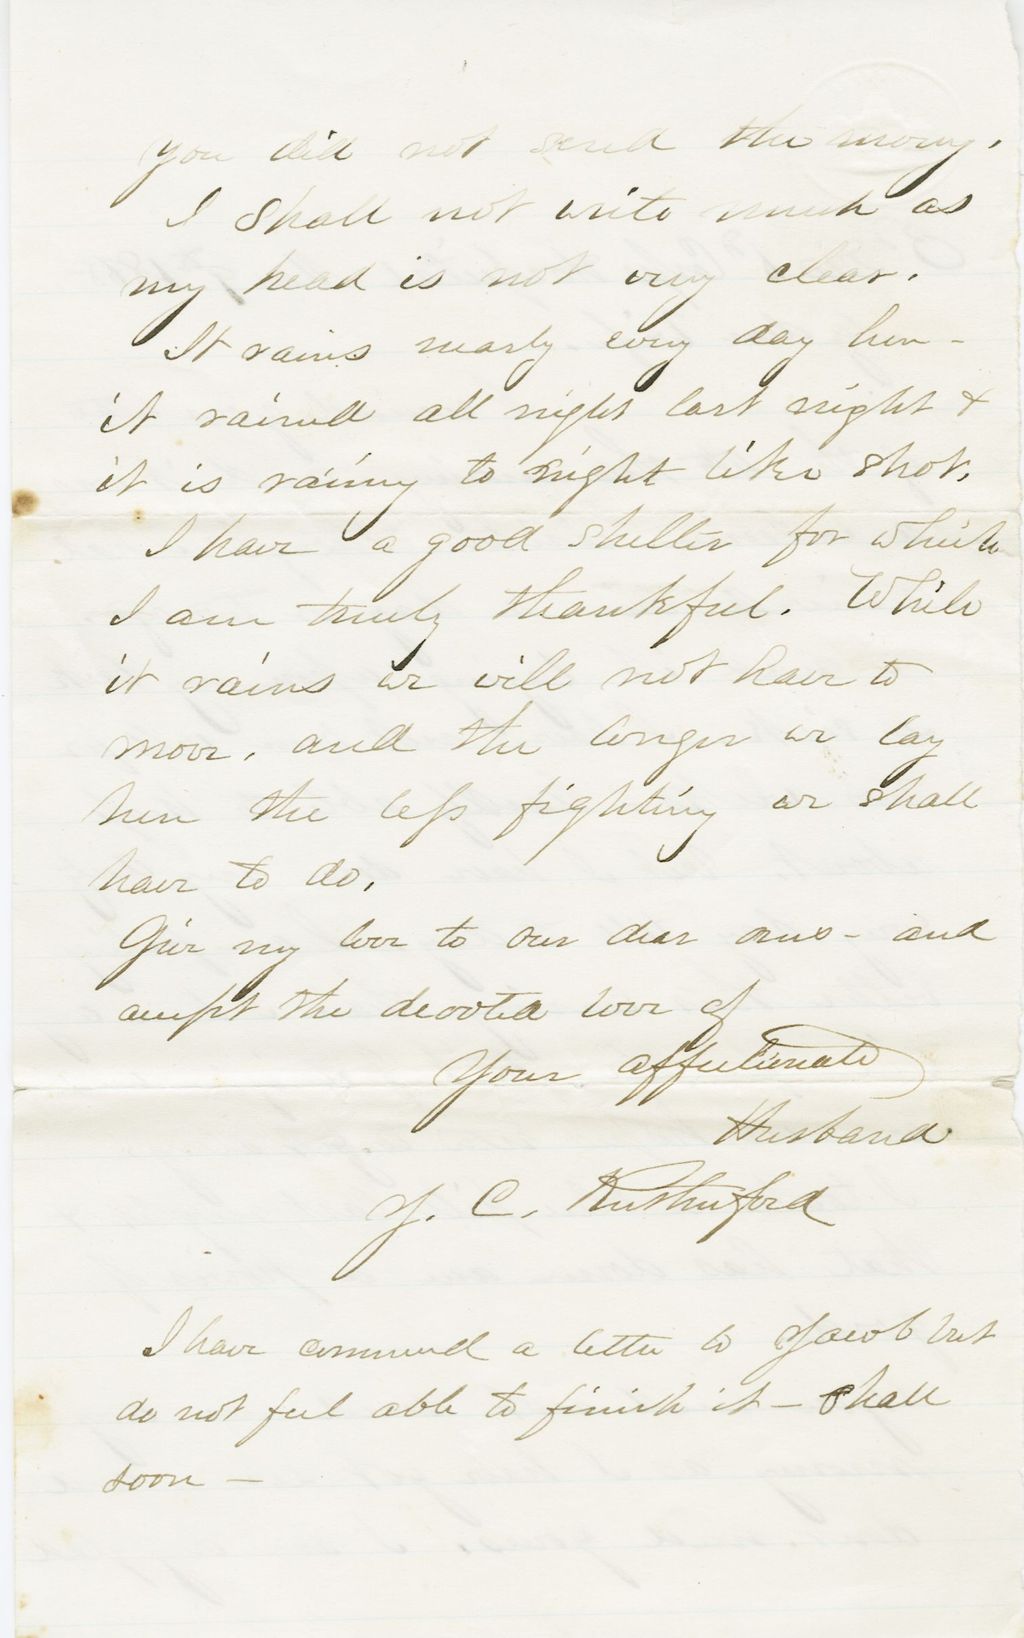 you did not send the money.
I shall not write much as
my head is not very clear.
It rains nearly every day here -
it rained all night last night &
it is rainy to night like shot.
I have a good shelter for which
I am truly thankful. While
it rains we will not have to
move, and the longer we lay
here the less fighting we shall
have to do.
Give my love to our dear ones - and
accept the devoted love of
Your affectionate
Husband
J. C. Rutherford
I have commenced a letter to Jacob but
do not feel able to finish it - Shall
soon -